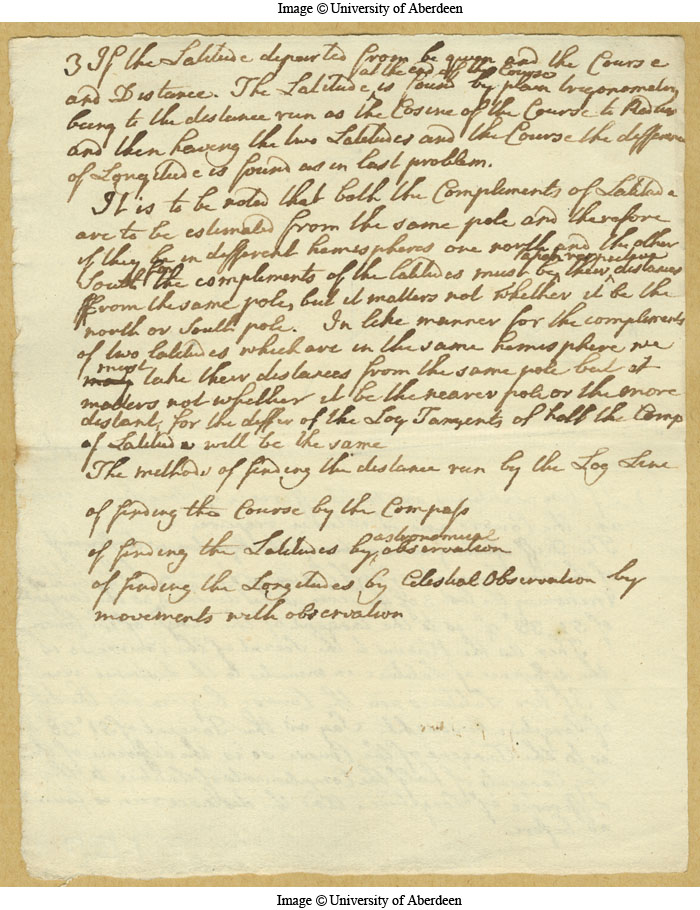 Image © University of Aberdeen
3 If the Latitude departed from be given and the Course
at the end of the Course
and Distance. The Latitude is found by plain trigonometry
being to the distance run as the Cosine of the Course to Radius
and then having the two Latitudes and the Course the difference
of Longitude is found as in last problem.
It is to be noted that both the Complements of Latitude
are to be estimated from the same pole and therefore
if they be in different hemispheres one north and the other
South the compliments of the latitudes must be their distances
from the same pole, but it matters not whether it be the
north or South pole. In like manner for the complements
of two latitudes which are in the same hemisphere we
must
may take their distances from the same pole but it
matters not whether it be the nearer pole or the more
distant, for the differ of the Log Tangents of half the Comp
of Latitude will be the same
The methods of finding the distance run by the Log Line
of finding the Course by the Compass
astronomical
of finding the Latitudes by observation
of finding the Longitudes by Celestial Observation by
movements with observation
Image © University of Aberdeen